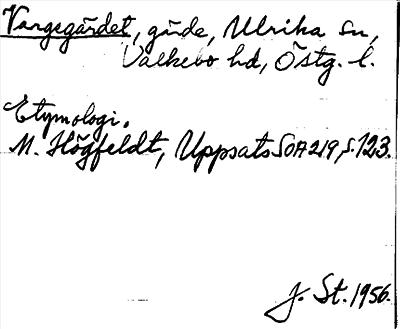 Vargegärdet, gärde, Ulrika sn,
Valkebo hd, Östg. l.
Etymologi.
M. Högfeldt, Uppsats SOA 219, s. 123.
J. St. 1956.